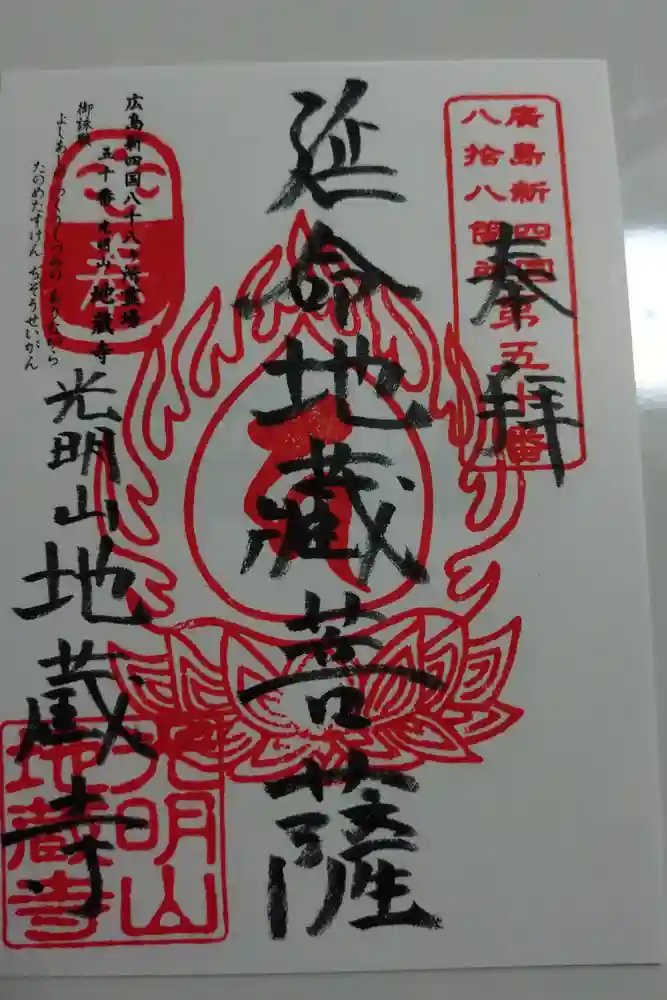 廣島新四国
八拾八箇所
第五十番
奉拝
延命地蔵菩薩
広島新四国八十八ヶ所霊場
五十番 光明山 地蔵寺
御詠歌
たのめたすけん ぢぞうせいがん
光明山地蔵寺
光明山
地蔵寺